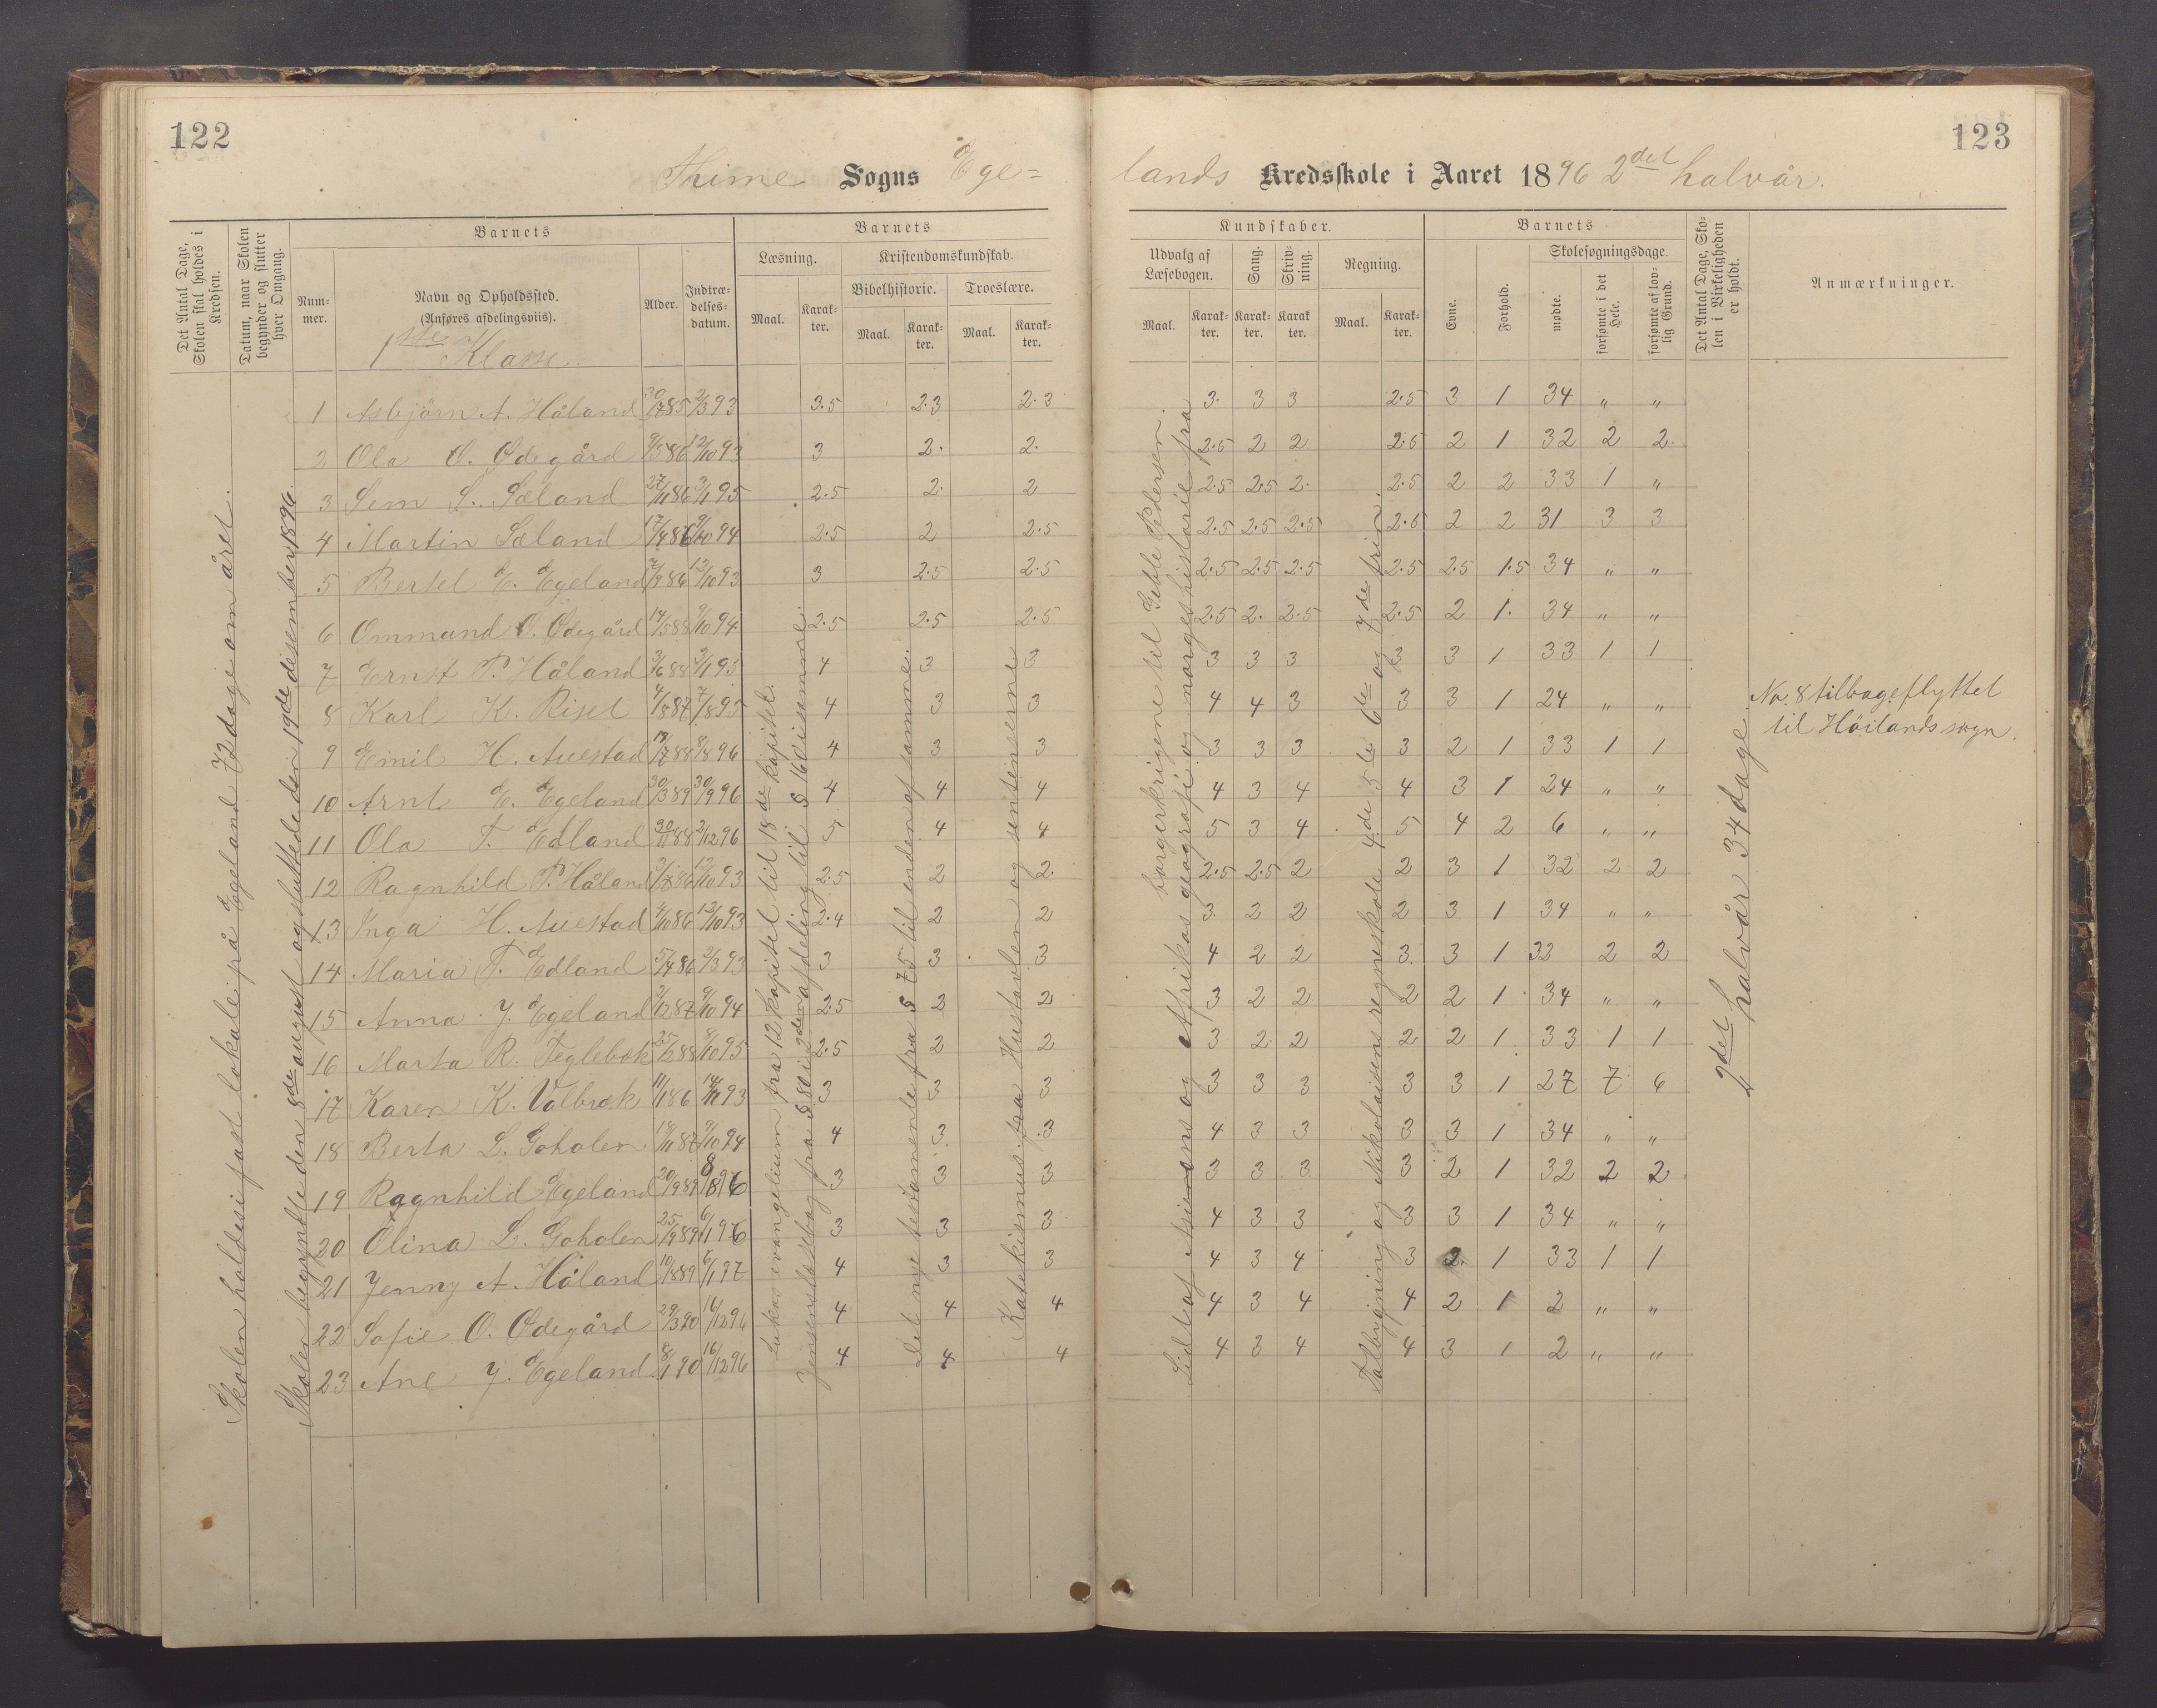 122
123
Thime Sogns Ege=
lands Kredsskole i Aaret 1896 2det halvår.
Det Antal Dage, Skolen skal holdes i Kredsen.
Datum, naar Skolen begynder og slutter hver Omgang.
Barnets
Nummer.
Navn og Opholdssted.
(Anføres afdelingsviis).
1ste Klasse.
Alder.
Indtrædelsesdatum.
Barnets
Læsning.
Maal.
Karakter.
Kristendomskundskab.
Bibelhistorie.
Maal.
Karakter.
Troeslære.
Maal.
Karakter.
Kundskaber.
Udvalg af Læsebogen.
Maal.
Karakter.
Sang.
Karakter.
Skrivning.
Karakter
Regning.
Maal.
Karakter.
Barnets
Evne.
Forhold.
Skolesøgningsdage.
mødte.
forsømte i det Hele.
forsømte af lovlig Grund.
Det Antal Dage, Skolen i Virkeligheden er holdt.
Anmærkninger.
Skolen holdes i fast lokale på Egeland 72 dage om året.
Skolen begyndte den 8de august og sluttede den 19de desember 1896.
Lukas evangelium fra 12 kapitel til 18de kapitel.
Jensens læsebog fra § 80 i 2den afdeling til § 160 i samme.
Det nye testamente fra § 75 til enden af samme.
Katekismus fra Hustavlen og sentenserne
Lidt af Asiens og Afrikas geografi og norgeshistorie fra
borgerkrigene til Geble Pedersen.
Talbygning og Nikolaisens regneskole 4de 5te 6te og 7de trin.
2det halvår 34 dage.
1 Asbjörn A. Håland 30/7 85 2/3 93 3.5 2.3 2.3 3. 3 3 2.5 3 1 34 " "
2 Ola O. Ödegård 9/5 86 12/10 93 3 2. 2. 2.5 2 2 2.5 2 1 32 2 2.
3 Sem S. Sæland 27/11 86 3/1 95 2.5 2. 2 2.5 2.5 2. 2.5 2 2 33 1 "
4 Martin Sæland 17/4 86 9/10 94 2.5 2 2.5 2.5 2.5 2.5 2.5 2 2 31 3 3
5 Bertel E. Egeland 2/9 86 12/10 93 3 2.5 2.5 2.5 2.5 2.5 2.5 2.5 1.5 34 " "
6 Ommund O. Ödegård 14/5 88 9/10 94 2.5 2.5 2.5 2.5 2. 2.5 2.5 2 1. 34 " "
7 Ernst P. Håland 3/6 88 3/1 95 4 3 3 3 3 3 3 3 1 33 1 1
8 Karl K. Risel 4/8 87 7/8 95 4 3 3 4 4 3 3 3 1 24 " "
9 Emil H. Auestad 13/7 88 8/8 96 4 3 3 3 3 3 3 2 1 33 1 1
10 Arnt E. Egeland 30/3 89 30/9 96 4 4 4 4 3 4 4 3 1 24 " "
11 Ola T. Edland 30/11 88 2/12 96 5 4 4 5 3 4 5 4 2 6 " "
12 Ragnhild P. Håland 3/7 86 12/10 93 2.5 2 2. 2.5 2.5 2 2 3 1 32 2 2
13 Inga H. Auestad 4/10 86 12/10 93 2.4 2 2 3 2 2 2 3 1 34 " "
14 Maria T. Edland 5/4 86 2/3 93 3 3 3 4 2 2 3. 3 1 32 2 2
15 Anna J. Egeland 2/12 87 9/10 94 2.5 2 2 3 2 2 2 2 1 34 " "
16 Marta R. Teglebæk 25/2 88 8/10 95 2.5 2 2 3 2 2 2 2 1 33 1 1
17 Karen K. Valbræk 11/1 86 14/11 93 3 3 3 3 3 3 3 3 1 27 7 6
18 Berta L. Goholen 12/11 87 9/10 94 4 3 3 4 3 3 3 3 1 34 " "
19 Ragnhild Egeland 20/9 89 8/8 96 3 3 3 3 3 3 3 2 1 32 2 2
20 Olina L. Goholen 25/9 89 6/1 96 3 3 3 4 3 3 3 3 1 34 " "
21 Jenny A. Håland 10/8 89 6/1 97 4 3 3 4 3 4 3 2. 1 33 1 1
22 Sofie O. Ödegård 29/3 90 16/12 96 4 4 4 4 3 4 4 2 1 2 " "
23 Ane J. Egeland 8/1 90 16/12 96 4 4 4 4 3 4 4 3 1 2 " "
No. 8 tilbageflyttet
til Höilands sogn.